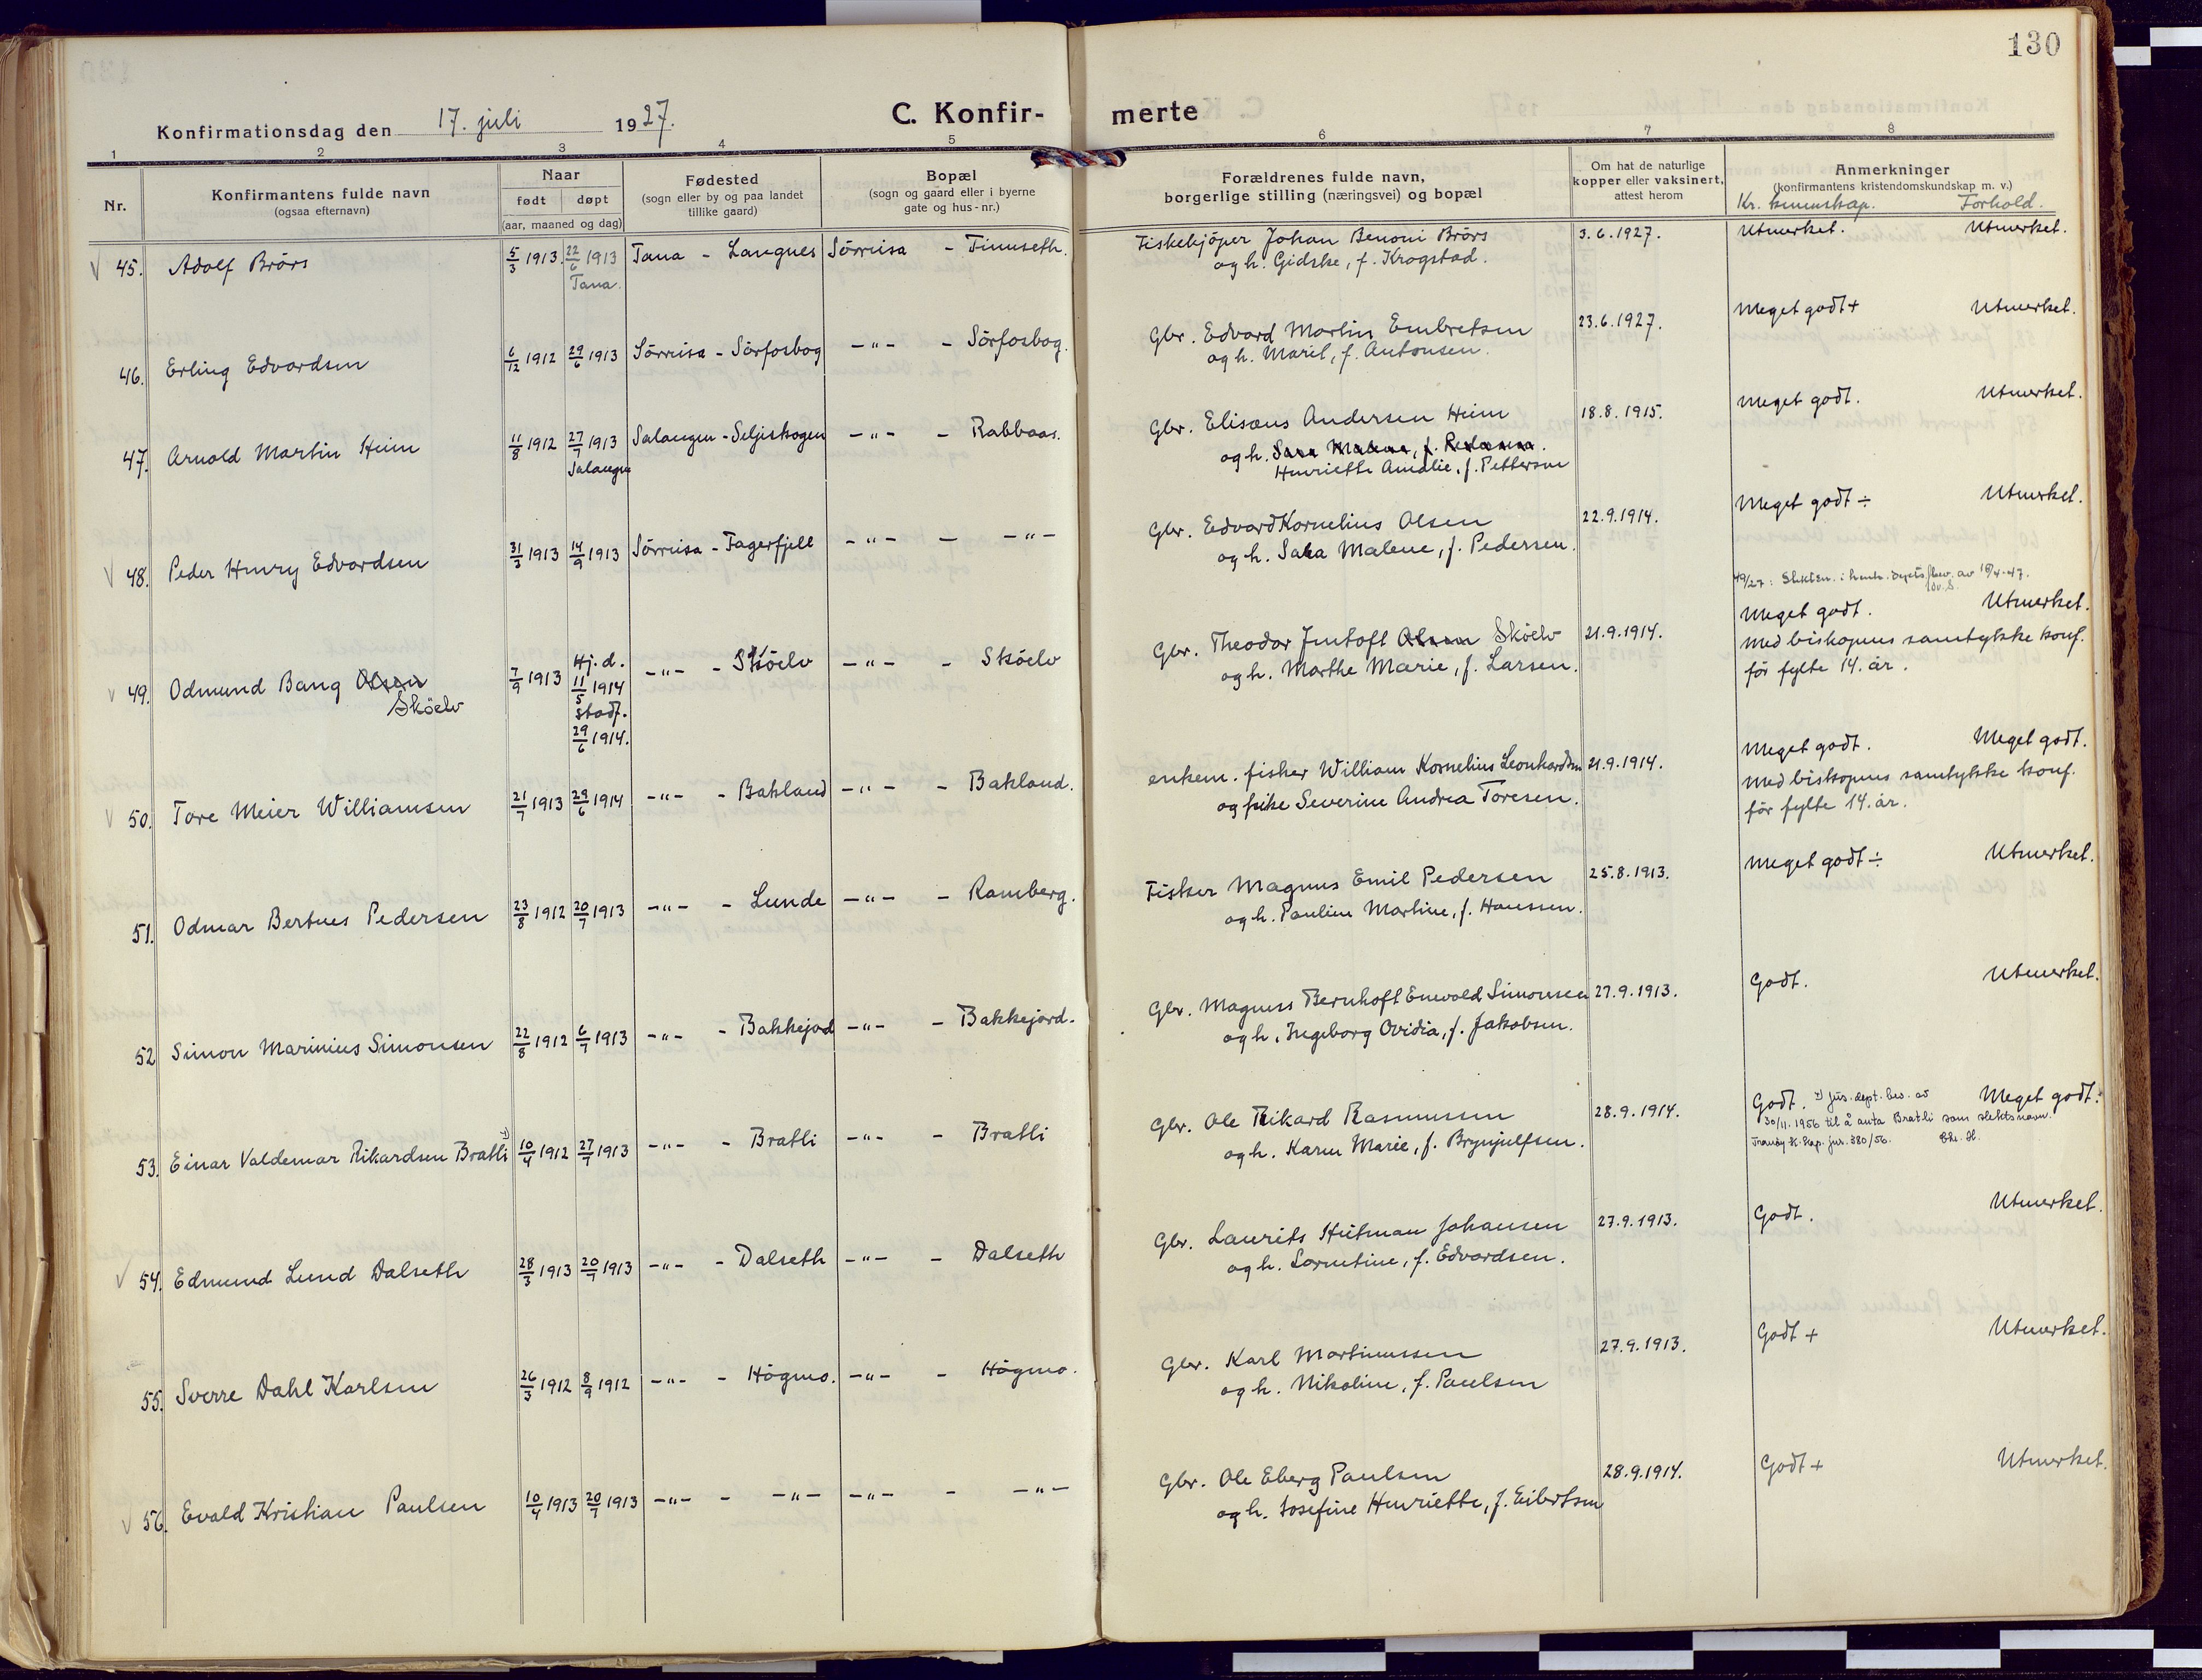 130
Konfirmationsdag den 17. juli 1927.
C. Konfir- merte
1 2 3 4 5 6 7 8
Nr.
Konfirmantens fulde navn
(ogsaa efternavn)
Naar
født døpt
(aar, maaned og dag)
Fødested
(sogn eller by og paa landet
tillike gaard)
Bopæl
(sogn og gaard eller i byerne
gate og hus-nr.)
Forældrenes fulde navn,
borgerlige stilling (næringsvei) og bopæl
Om hat de naturlige
kopper eller vaksinert,
attest herom
Anmerkninger
(konfirmantens kristendomskundskap m. v.)
Kr. kunnskap. Forhold.
45. Adolf Brörs 5/3 1913 22/6 1913 Tana - Langnes Sörreisa - Finnseth. Fiskekjöper Johan Benoni Brörs 3.6.1927. Utmerket. Utmerket.
Tana. og h. Gidske, f. Krogstad.
46. Erling Edvardsen 6/12 1912 29/6 1913 Sörreisa - Sörfosbog -"- - Sörfosbog. Gbr. Edvard Martin Embretsen 23.6.1927. Meget godt + Utmerket.
og h. Marit, f. Antonsen.
47. Arnold Martin Heim 11/8 1912 27/7 1913 Salangen - Seljeskogen -"- - Rabbaas. Gbr. Elisæus Andersen Heim 18.8.1915. Meget godt. Utmerket.
Salangen og h. Sara Malene, f. Pedersen.
Henriette Amalie, f. Pettersen
48. Peder Henry Edvardsen 31/3 1913 14/9 1913 Sörreisa - Fagerfjell -"- - -"- Gbr. Edvard Kornelius Olsen 22.9.1914. Meget godt ÷ Utmerket.
og h. Sara Malene, f. Pedersen.
49. Odmund Bang Olsen 7/9 1913 Hj.d. 11/5 1914 -"- - Sköelv -"- - Sköelv Gbr. Theodor Jentoft Olsen Sköelv 21.9.1914. Meget godt. Utmerket.
Sköelv stadf. 29/6 1914. og h. Marthe Marie, f. Larsen. Med biskopens samtykke konf.
för fylte 14. år.
50. Tore Meier Williamsen 21/7 1913 29/6 1914 -"- - Bakland -"- - Bakland. enkem. fisker William Kornelius Leonhardsen 21.9.1914. Meget godt. Meget godt.
og pike Severine Andrea Toresen. Med biskopens samtykke konf.
för fylte 14. år.
51. Odmar Bertnes Pedersen 23/8 1912 20/7 1913 -"- - Lunde -"- - Ramberg. Fisker Magnus Emil Pedersen 25.8.1913. Meget godt ÷ Utmerket.
og h. Pauline Martine, f. Hanssen.
52 Simon Marinius Simonsen 22/8 1912 6/7 1913 -"- - Bakkejord -"- - Bakkejord. Gbr. Magnus Bernhoft Enevold Simonsen 27.9.1913. Godt. Utmerket.
og h. Ingeborg Ovidia, f. Jakobsen.
53. Einar Valdemar Rikardsen Bratli 1) 10/4 1912 27/7 1913 -"- - Bratli -"- - Bratli Gbr. Ole Rikard Rasmussen 28.9.1914. Godt. 1) Jus. dept. bev. av Meget godt.
og h. Karen Marie, f. Brynjulfsen. 30/11. 1956 til å anta Bratli som slektsnavn.
54. Edmund Lund Dalseth 28/3 1913 20/7 1913 -"- - Dalseth -"- - Dalseth Gbr. Laurits Hitman Johansen 27.9.1913. Godt. Utmerket.
og h. Lorentine, f. Edvardsen.
55. Sverre Dahl Karlsen 26/3 1912 8/9 1912 -"- - Högmo. -"- - Högmo. Gbr. Karl Martinussen 27.9.1913. Godt + Utmerket.
og h. Nikoline, f. Paulsen
56. Evald Kristian Paulsen 10/4 1913 20/7 1913 -"- - -"- -"- - -"- Gbr. Ole Eberg Paulsen 28.9.1914. Godt + Utmerket.
og h. Josefine Henriette, f. Eibertsen